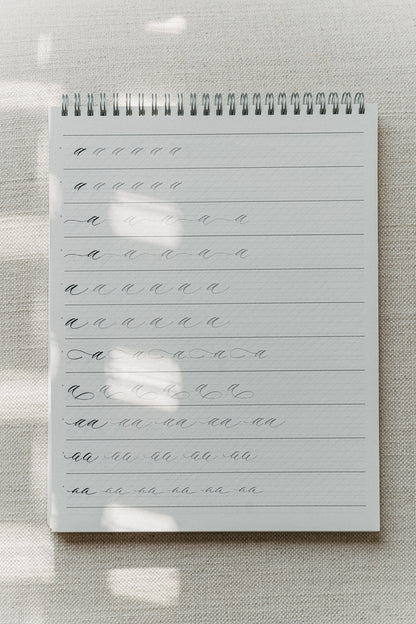 a a a a a a
a a a a a a
a a a a a
a a a a a
a a a a a a
a a a a a a
a a a a a a
a a a a a a
aa aa aa aa aa
aa aa aa aa aa
aa aa aa aa aa aa